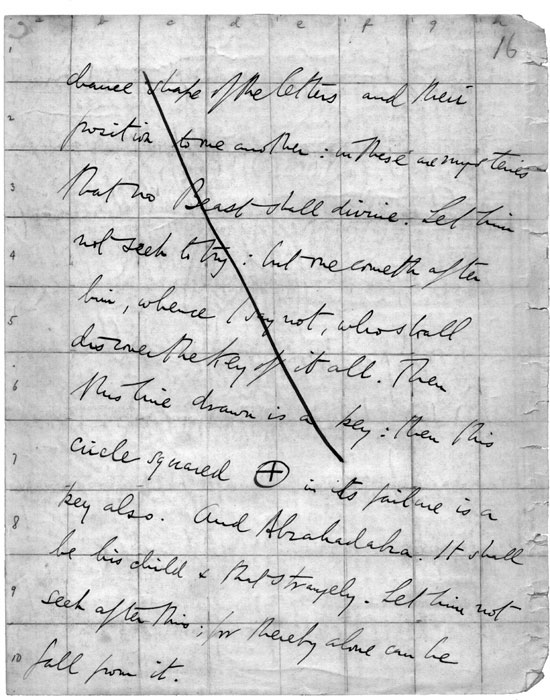 b c d e f g h
16
1
chance shape of the letters and their
2
position to one another : in these are mysteries
3
that no Beast shall divine. Let him
4
not seek to try : but one cometh after
him, whence I say not, who shall
5
discover the Key of it all. Then
6
this line drawn is a key : then this
7
circle squared ⊕ in its failure is a
key also. And Abrahadabra. It shall
8
be his child & that strangely. Let him not
9
seek after this; for thereby alone can he
10
fall from it.